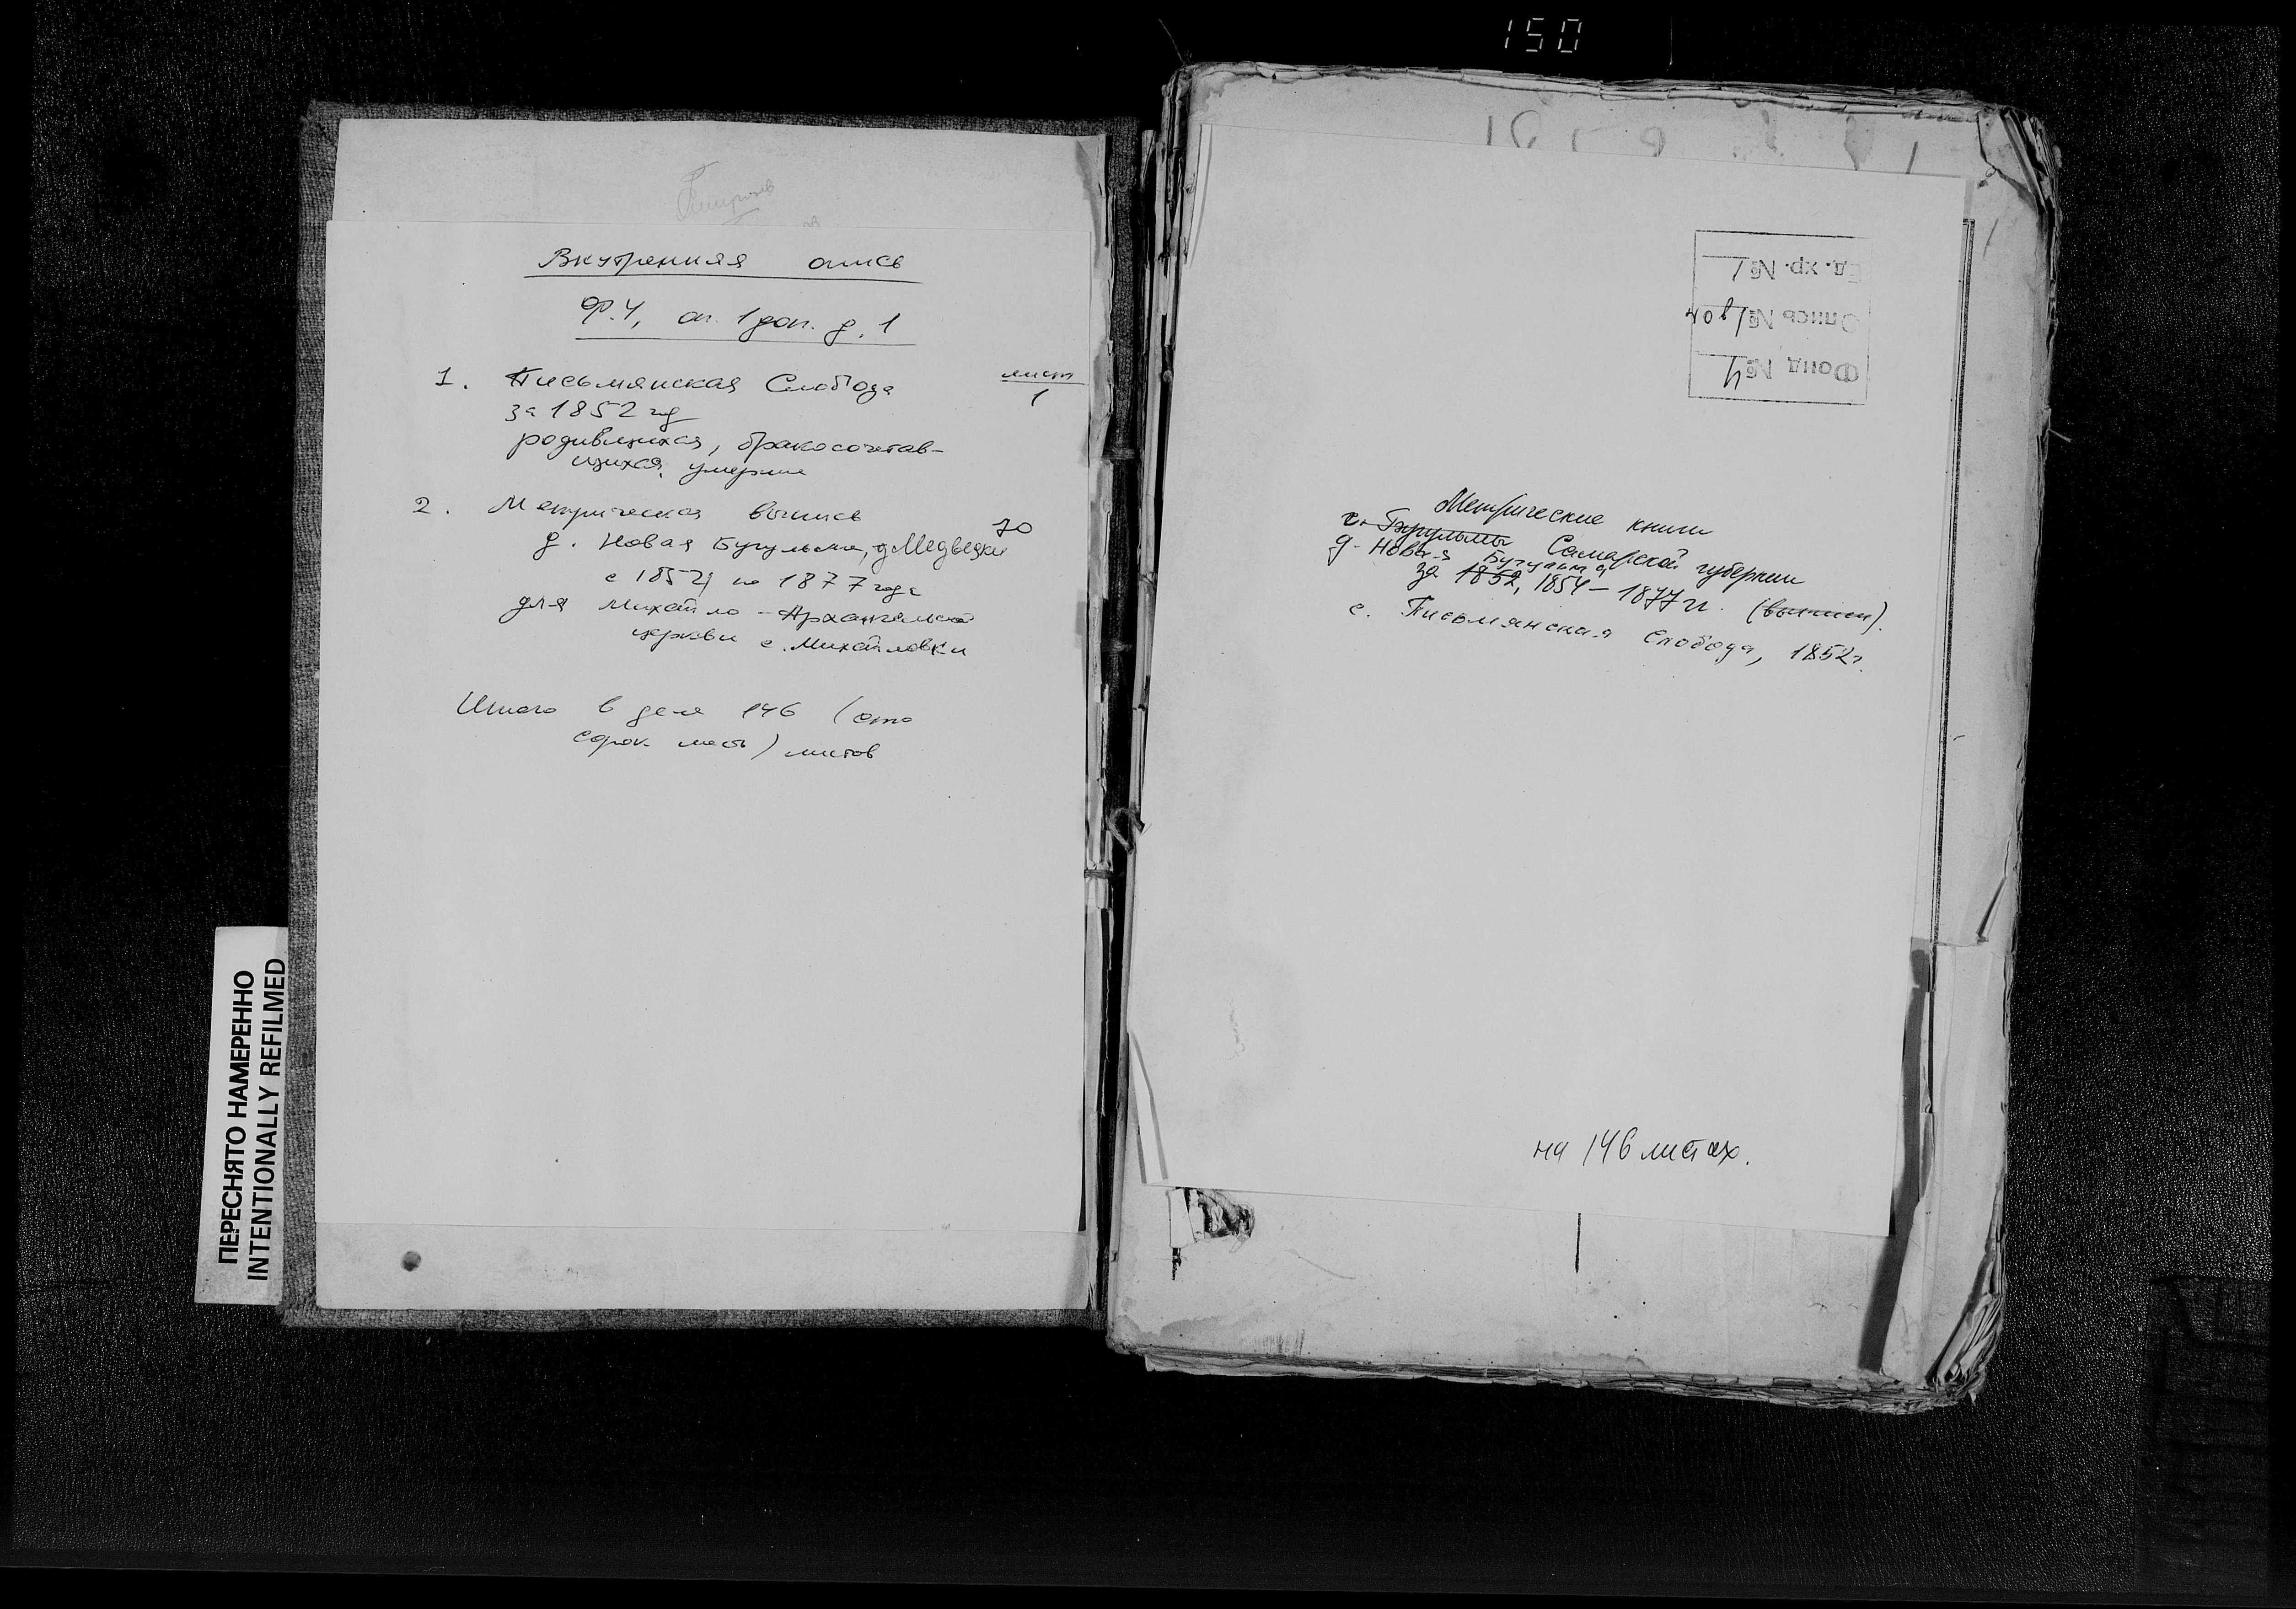 150
Внутренняя опись
Ф.4, оп. 1 доп. д. 1
лист
1. Письмянская Слобода 1
за 1852 год
родившихся, бракосочетав-
шихся, умерших
2. Метрическая выпись 70
д. Новая Бугульма, д. Медведки
с 1852 по 1877 года
для Михайло-Архангельской
церкви с. Михайловки
Итого в деле 146 (сто
сорок шесть) листов
ПЕРЕСНЯТО НАМЕРЕННО
INTENTIONALLY REFILMED
Фонд № 4
Опись № 1 доп
Ед. хр. № 1
Метрические книги
с. Бугульмы Самарской губернии
д. Новая Бугульма
за 1852, 1854–1877 гг. (выписи).
с. Письмянская Слобода, 1852г.
на 146 листах.